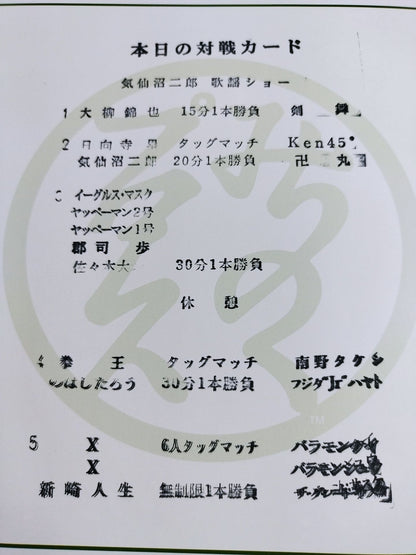 本日の対戦カード
気仙沼二郎 歌謡ショー
1 大柳錦也 15分1本勝負 剣舞
2 日向寺塁 タッグマッチ Ken45°
気仙沼二郎 20分1本勝負 卍丸
3 イーグルス・マスク
ヤッペーマン2号
ヤッペーマン1号
郡司歩
佐々木大 30分1本勝負
休憩
4 拳王 タッグマッチ 南野タケシ
のはしたろう 30分1本勝負 フジタ"Jr"ハヤト
5 X 6人タッグマッチ バラモン
X バラモン
新崎人生 無制限1本勝負 ザ・グレート
TM